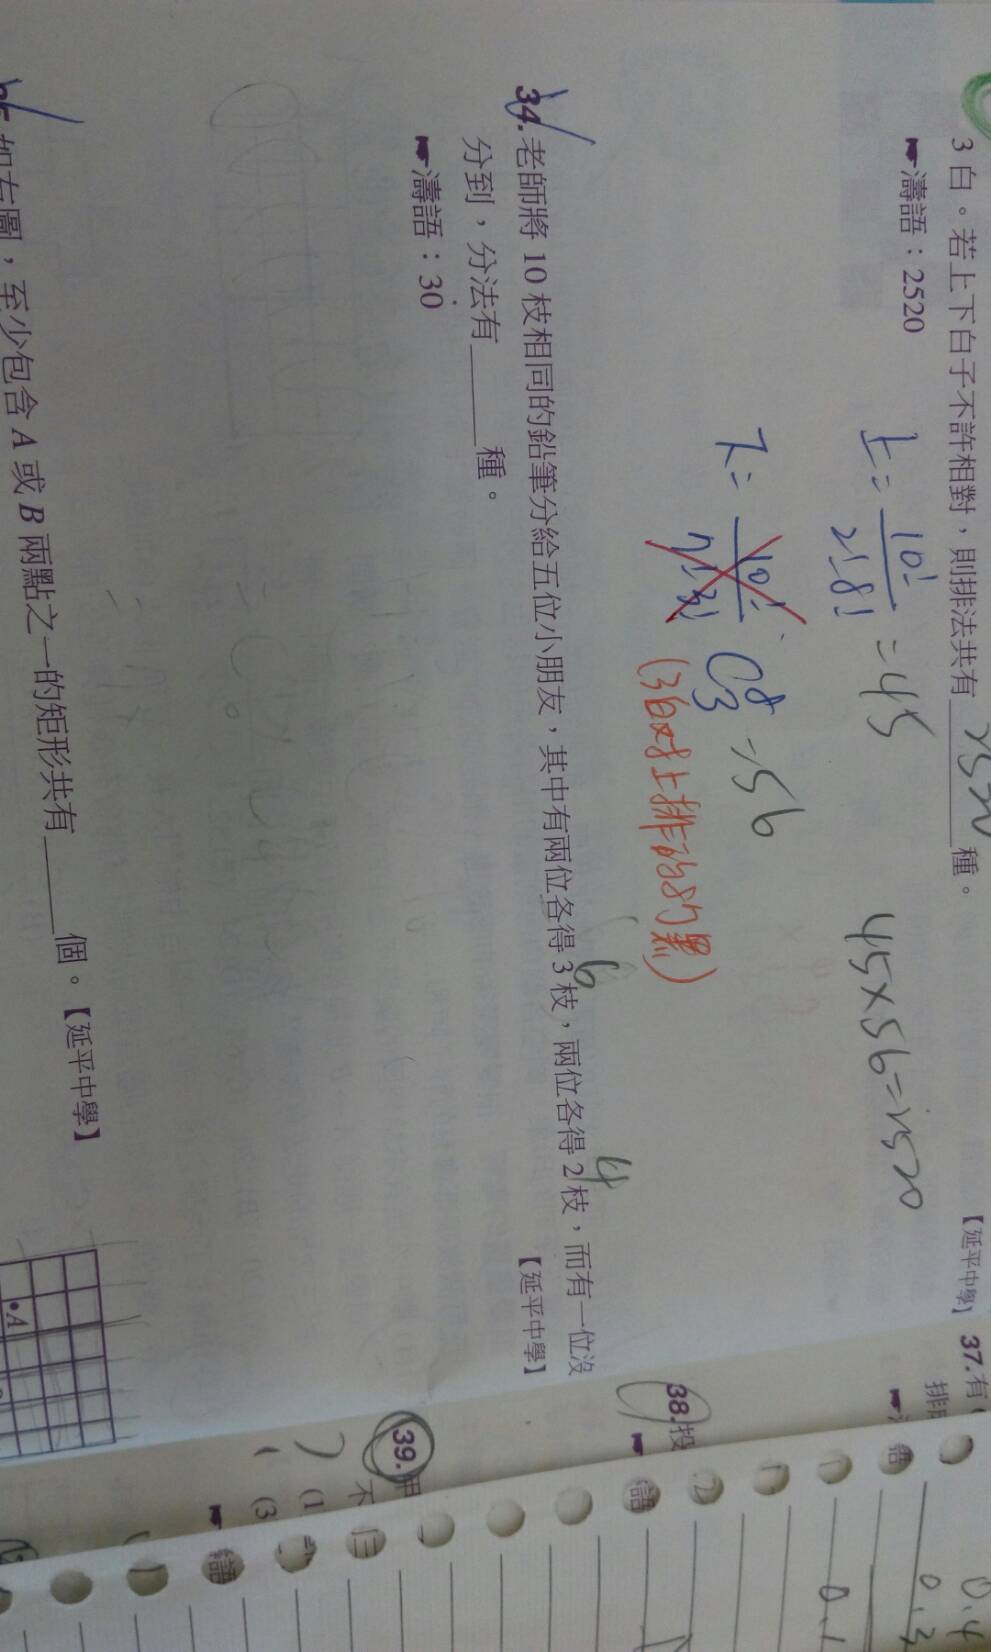 3 白。若上下白子不許相對，則排法共有 2520 種。
【延平中學】
☛濤語：2520
上= 10!/2!8! = 45
45×56=2520
下= 10!/7!3! C⁸₃ = 56
(3白對上排的8個黑)
34. 老師將 10 枝相同的鉛筆分給五位小朋友，其中有兩位各得 3 枝，兩位各得 2 枝，而有一位沒
6
4
分到，分法有______種。
【延平中學】
☛濤語：30
如右圖，至少包含 A 或 B 兩點之一的矩形共有______個。【延平中學】
•A
37. 有
排
38. 投
語
39. 甲
不
(1
(3
語
0.4
0.3
0.1